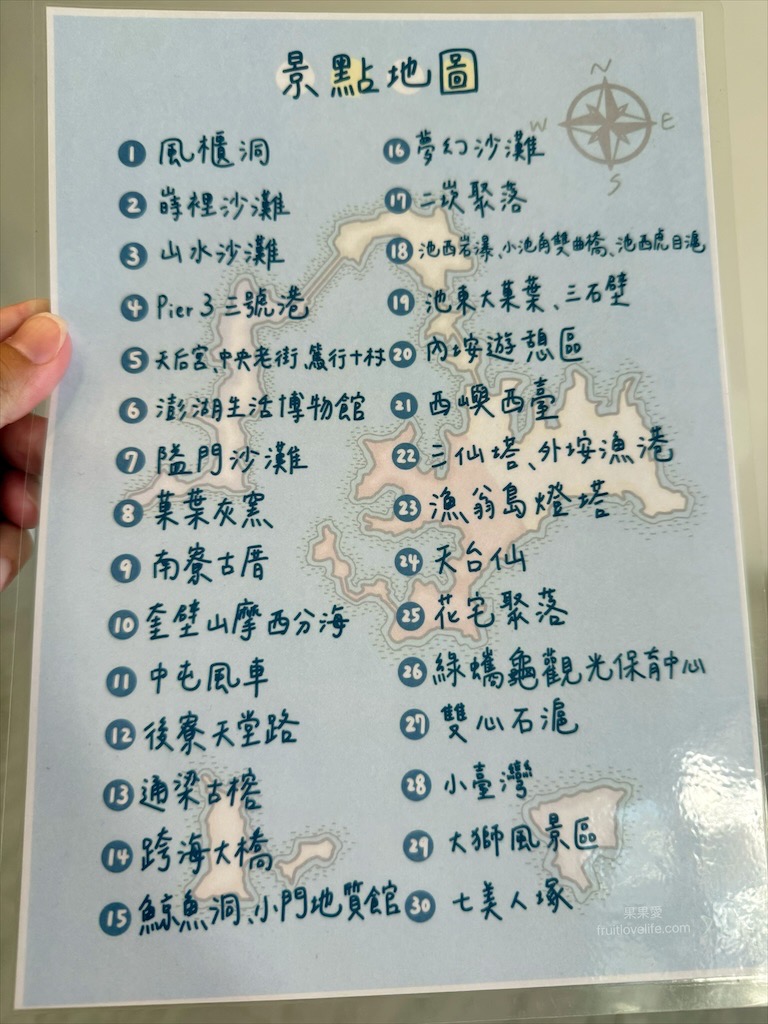 景點地圖
N
W
E
S
1 風櫃洞
2 嵵裡沙灘
3 山水沙灘
4 Pier 3 三號港
5 天后宮、中央老街、篤行十村
6 澎湖生活博物館
7 隘門沙灘
8 菓葉灰窯
9 南寮古厝
10 奎壁山摩西分海
11 中屯風車
12 後寮天堂路
13 通梁古榕
14 跨海大橋
15 鯨魚洞、小門地質館
16 夢幻沙灘
17 二崁聚落
18 池西岩瀑、小池角雙曲橋、池西虎目滬
19 池東大菓葉、三石壁
20 內垵遊憩區
21 西嶼西臺
22 三仙塔、外垵漁港
23 漁翁島燈塔
24 天台仙
25 花宅聚落
26 綠蠵龜觀光保育中心
27 雙心石滬
28 小臺灣
29 大獅風景區
30 七美人塚
果果愛
fruitlovelife.com